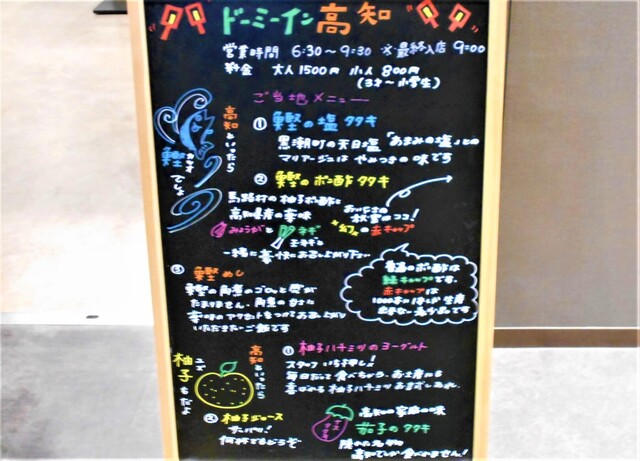 ドーミーイン高知
営業時間 6:30~9:30 ※最終入店 9:00
料金 大人1500円 小人800円
(3才~小学生)
ご当地メニュー
高知といったら
鰹カツオでしょ
① 鰹の塩タタキ
黒潮町の天日塩「あまみの塩」との
マリアージュは やみつきの味です
② 鰹のポン酢タタキ
馬路村の柚子ポン酢と
高知県産の薬味
みょうがとネギ
玉ネギと
一緒に豪快にお召し上がり下さい
おいしさの
秘密のココ!
"幻"の赤キャップ
普通のポン酢は
緑キャップです。
赤キャップは
③ 鰹めし
鰹の角煮のゴロッと感が
たまりません。角煮の甘さに
いただきたいご飯です
高知といったら
柚子ユズもだよ
① 柚子ハチミツのヨーグルト
スタッフいち押し!!
② 柚子ジュース
サッパリ!
何杯でもどうぞ
高知の家庭の味
茄子のタタキ
高知でしか食べれません!